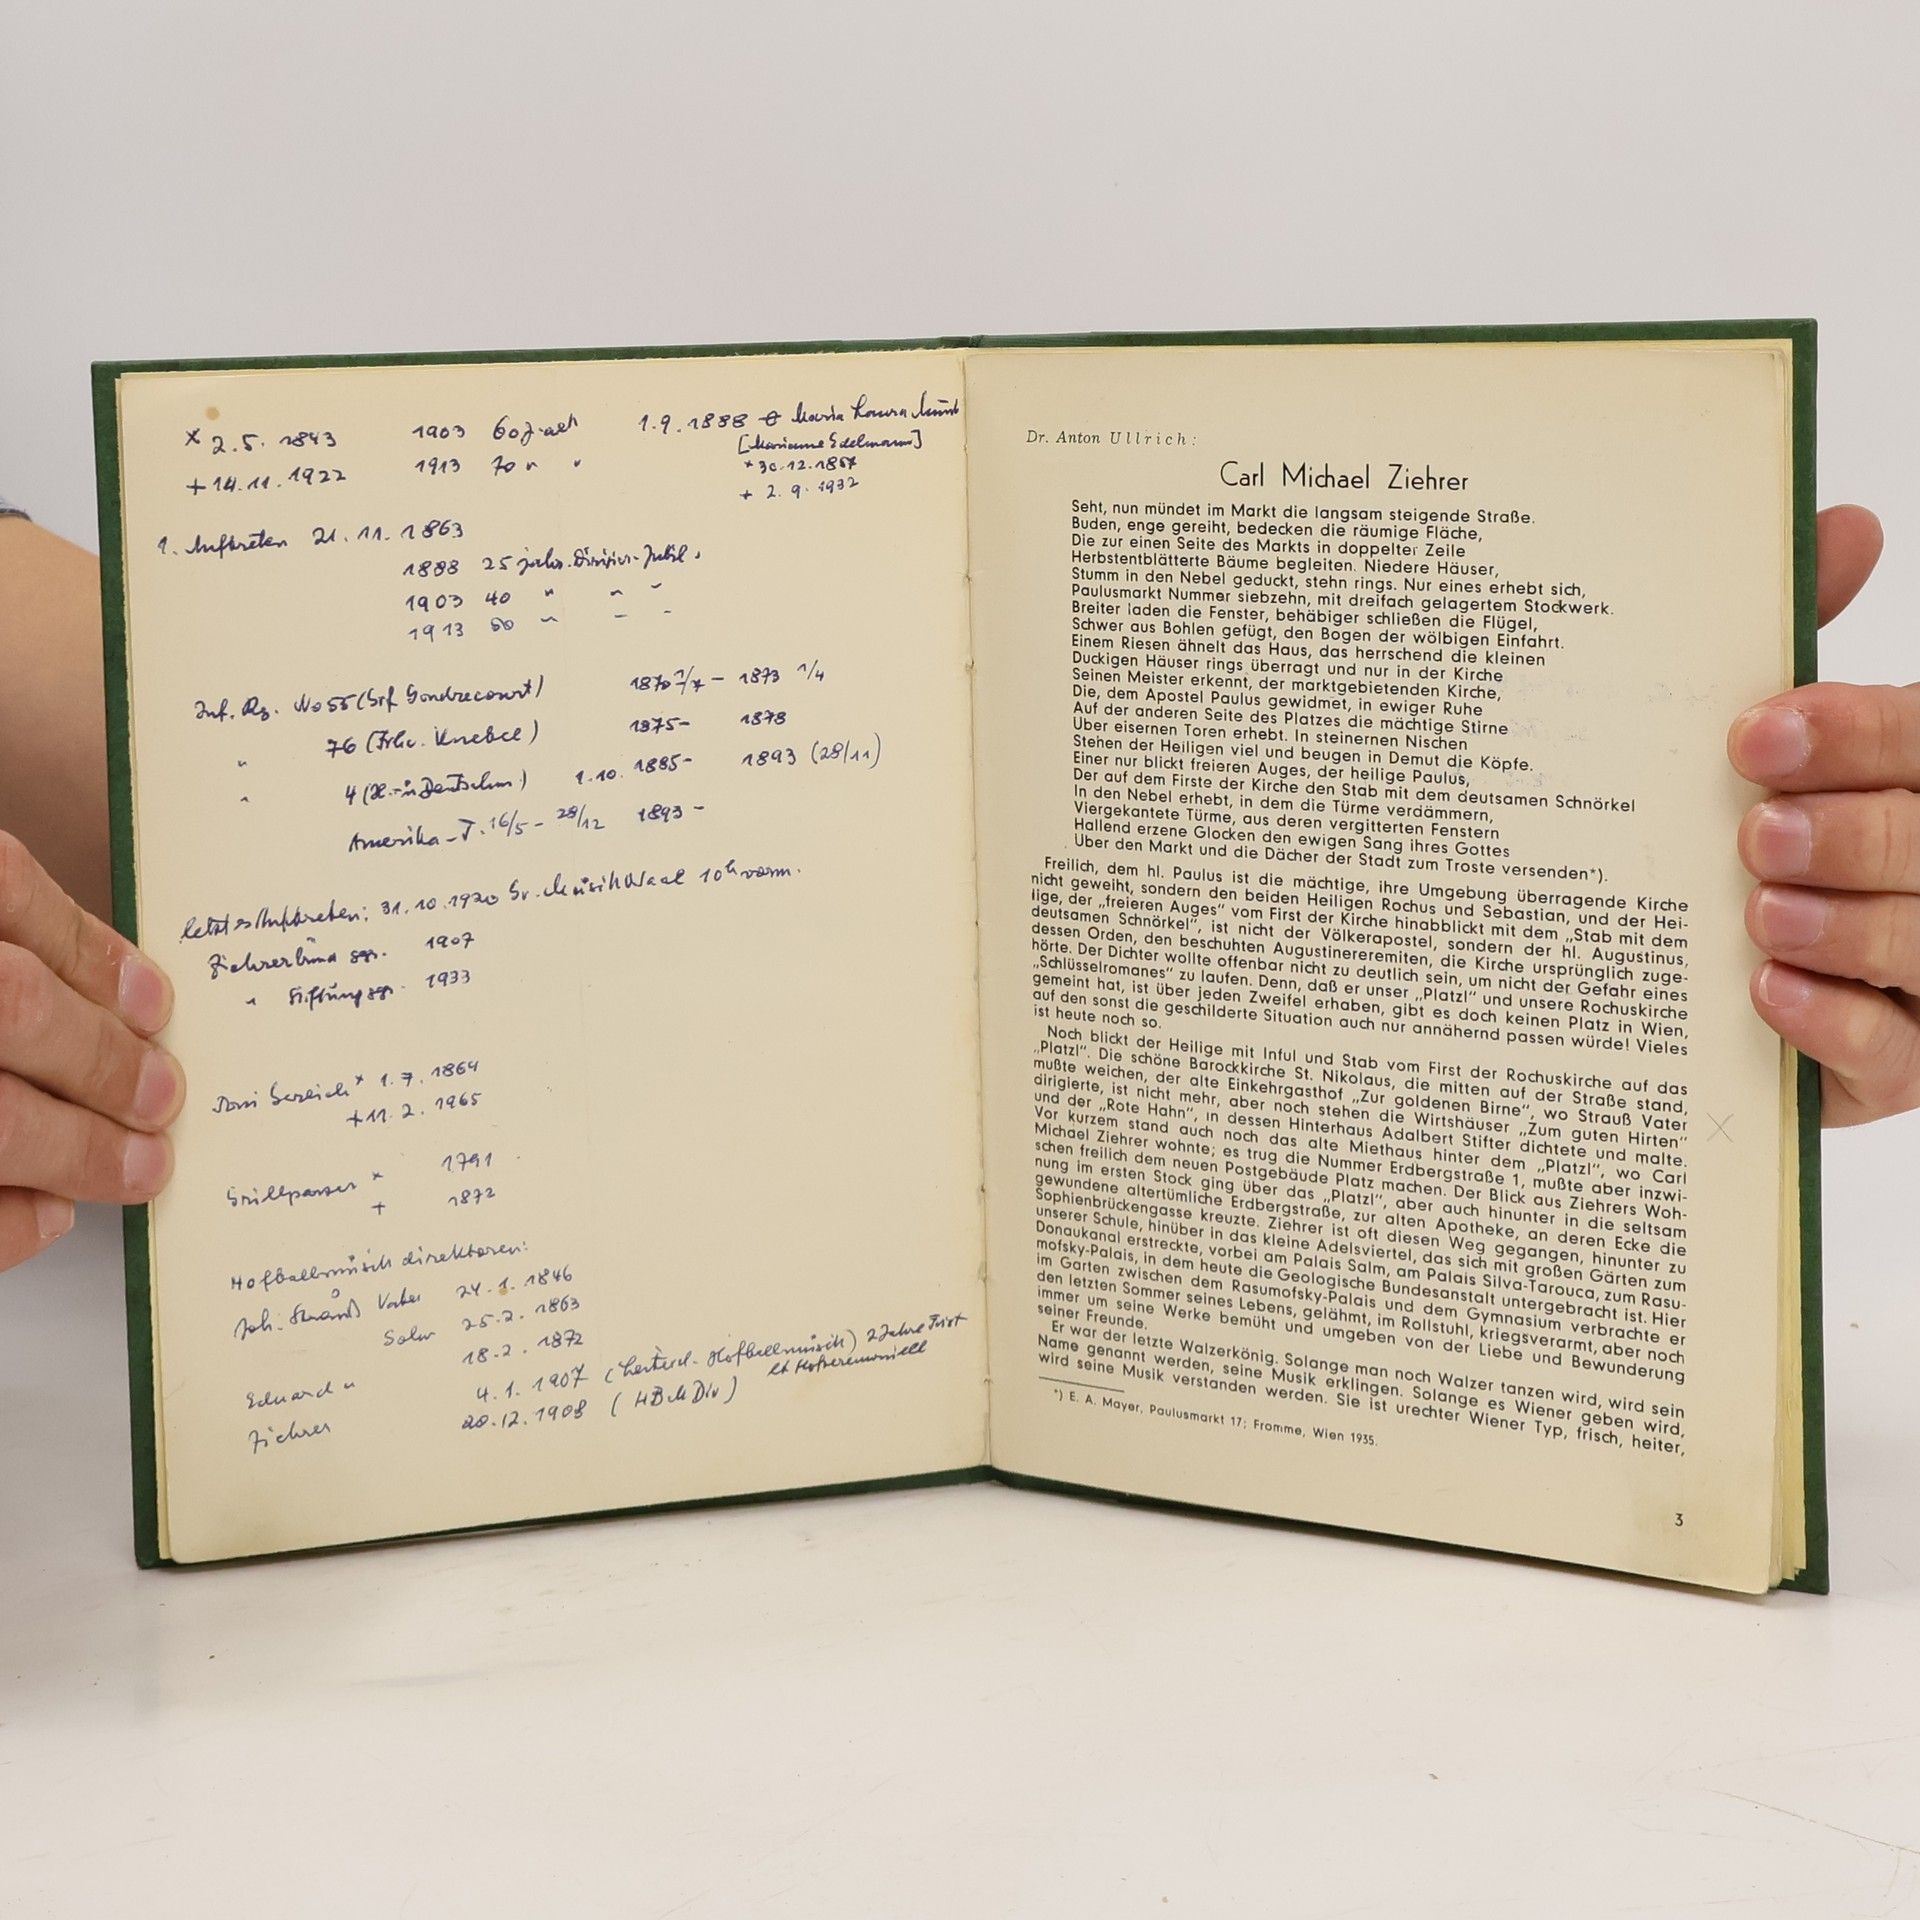 × 2.5.1843 1903 60j. alt 1.9.1888 Maria Laura
+ 14.11.1922 1913 70 " " [Marianne Edelmann]
* 30.12.1857
+ 2.9.1932
1. Auftreten 21.11.1863
1888 25 jähr. Jubil.
1903 40 " " "
1913 50 " " "
Inf. Rg. No 55 (Grf Gondrecourt) 1870 1/7 – 1873 1/4
" 76 (Frh. v. Knebel) 1875– 1878
" 4 (H.- u Deutschm.) 1.10. 1885– 1893 (28/11)
Amerika–T. 16/5 – 28/12 1893 –
letztes Auftreten: 31.10.1920 Gr. Musikv.saal 10h vorm.
Ziehrerbund gegr. 1907
" Stiftung gegr. 1933
× 1.7.1864
+ 11.2.1965
Grillparzer × 1791
+ 1872
Hofballmusikdirektoren:
Joh. Strauß Vater 24.1.1846
Sohn 25.2.1863
Eduard " 18.2.1872
4.1.1907 (Hofballmusik) 2 Jahre Frist
lt Hofzeremoniell
Ziehrer 20.12.1908 (HBMDir)
Dr. Anton Ullrich:
Carl Michael Ziehrer
Seht, nun mündet im Markt die langsam steigende Straße.
Buden, enge gereiht, bedecken die räumige Fläche,
Die zur einen Seite des Markts in doppelter Zeile
Herbstentblätterte Bäume begleiten. Niedere Häuser,
Stumm in den Nebel geduckt, stehn rings. Nur eines erhebt sich,
Paulusmarkt Nummer siebzehn, mit dreifach gelagertem Stockwerk.
Breiter laden die Fenster, behäbiger schließen die Flügel,
Schwer aus Bohlen gefügt, den Bogen der wölbigen Einfahrt.
Einem Riesen ähnelt das Haus, das herrschend die kleinen
Duckigen Häuser rings überragt und nur in der Kirche
Seinen Meister erkennt, der marktgebietenden Kirche,
Die, dem Apostel Paulus gewidmet, in ewiger Ruhe
Auf der anderen Seite des Platzes die mächtige Stirne
Über eisernen Toren erhebt. In steinernen Nischen
Stehen der Heiligen viel und beugen in Demut die Köpfe.
Einer nur blickt freieren Auges, der heilige Paulus,
Der auf dem Firste der Kirche den Stab mit dem deutsamen Schnörkel
In den Nebel erhebt, in dem die Türme verdämmern,
Viergekantete Türme, aus deren vergitterten Fenstern
Hallend erzene Glocken den ewigen Sang ihres Gottes
Über den Markt und die Dächer der Stadt zum Troste versenden*).
Freilich, dem hl. Paulus ist die mächtige, ihre Umgebung überragende Kirche
nicht geweiht, sondern den beiden Heiligen Rochus und Sebastian, und der Hei-
lige, der „freieren Auges“ vom First der Kirche hinabblickt mit dem „Stab mit dem
deutsamen Schnörkel“, ist nicht der Völkerapostel, sondern der hl. Augustinus,
dessen Orden, den beschuhten Augustinereremiten, die Kirche ursprünglich zuge-
hörte. Der Dichter wollte offenbar nicht zu deutlich sein, um nicht der Gefahr eines
„Schlüsselromanes“ zu laufen. Denn, daß er unser „Platzl“ und unsere Rochuskirche
gemeint hat, ist über jeden Zweifel erhaben, gibt es doch keinen Platz in Wien,
auf den sonst die geschilderte Situation auch nur annähernd passen würde! Vieles
ist heute noch so.
Noch blickt der Heilige mit Inful und Stab vom First der Rochuskirche auf das
„Platzl“. Die schöne Barockkirche St. Nikolaus, die mitten auf der Straße stand,
mußte weichen, der alte Einkehrgasthof „Zur goldenen Birne“, wo Strauß Vater
dirigierte, ist nicht mehr, aber noch stehen die Wirtshäuser „Zum guten Hirten“
und der „Rote Hahn“, in dessen Hinterhaus Adalbert Stifter dichtete und malte.
Vor kurzem stand auch noch das alte Miethaus hinter dem „Platzl“, wo Carl
Michael Ziehrer wohnte; es trug die Nummer Erdbergstraße 1, mußte aber inzwi-
schen freilich dem neuen Postgebäude Platz machen. Der Blick aus Ziehrers Woh-
nung im ersten Stock ging über das „Platzl“, aber auch hinunter in die seltsam
gewundene altertümliche Erdbergstraße, zur alten Apotheke, an deren Ecke die
Sophienbrückengasse kreuzte. Ziehrer ist oft diesen Weg gegangen, hinunter zu
unserer Schule, hinüber in das kleine Adelsviertel, das sich mit großen Gärten zum
Donaukanal erstreckte, vorbei am Palais Salm, am Palais Silva-Tarouca, zum Rasu-
mofsky-Palais, in dem heute die Geologische Bundesanstalt untergebracht ist. Hier
im Garten zwischen dem Rasumofsky-Palais und dem Gymnasium verbrachte er
den letzten Sommer seines Lebens, gelähmt, im Rollstuhl, kriegsverarmt, aber noch
immer um seine Werke bemüht und umgeben von der Liebe und Bewunderung
seiner Freunde.
Er war der letzte Walzerkönig. Solange man noch Walzer tanzen wird, wird sein
Name genannt werden, seine Musik erklingen. Solange es Wiener geben wird,
wird seine Musik verstanden werden. Sie ist urechter Wiener Typ, frisch, heiter,
*) E. A. Mayer, Paulusmarkt 17; Fromme, Wien 1935.
3